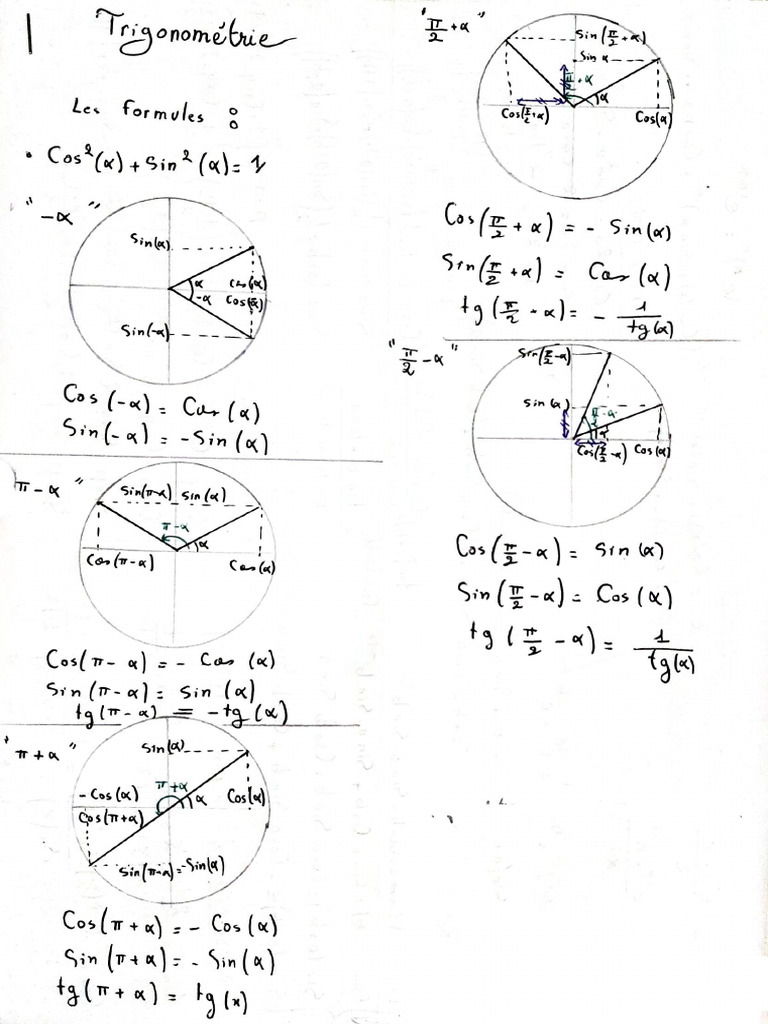 Trigonométrie
Les formules :
• Cos²(α) + Sin²(α) = 1
"-α"
Sin(α)
α
-α
Cos(α)
Sin(-α)
Cos(-α) = Cos(α)
Sin(-α) = -Sin(α)
π-α"
Sin(π-α) sin(α)
π-α
α
Cos(π-α)
Cos(α)
Cos(π-α) = - Cos(α)
Sin(π-α) = Sin(α)
tg(π-α) = -tg(α)
"π+α"
Sin(α)
π+α
α
-Cos(α)
Cos(α)
Cos(π+α)
Sin(π-α)=-Sin(α)
Cos(π+α) = - Cos(α)
Sin(π+α) = - Sin(α)
tg(π+α) = tg(x)
"π/2+α"
Sin(π/2+α)
Sin α
π/2+α
α
Cos(π/2+α)
Cos(α)
Cos(π/2+α) = - Sin(α)
Sin(π/2+α) = Cos(α)
tg(π/2+α) = - 1/tg(α)
"π/2-α"
Sin(π/2-α)
Sin(α)
π/2-α
α
Cos(π/2-α)
Cos(α)
Cos(π/2-α) = Sin(α)
Sin(π/2-α) = Cos(α)
tg(π/2-α) = 1/tg(α)